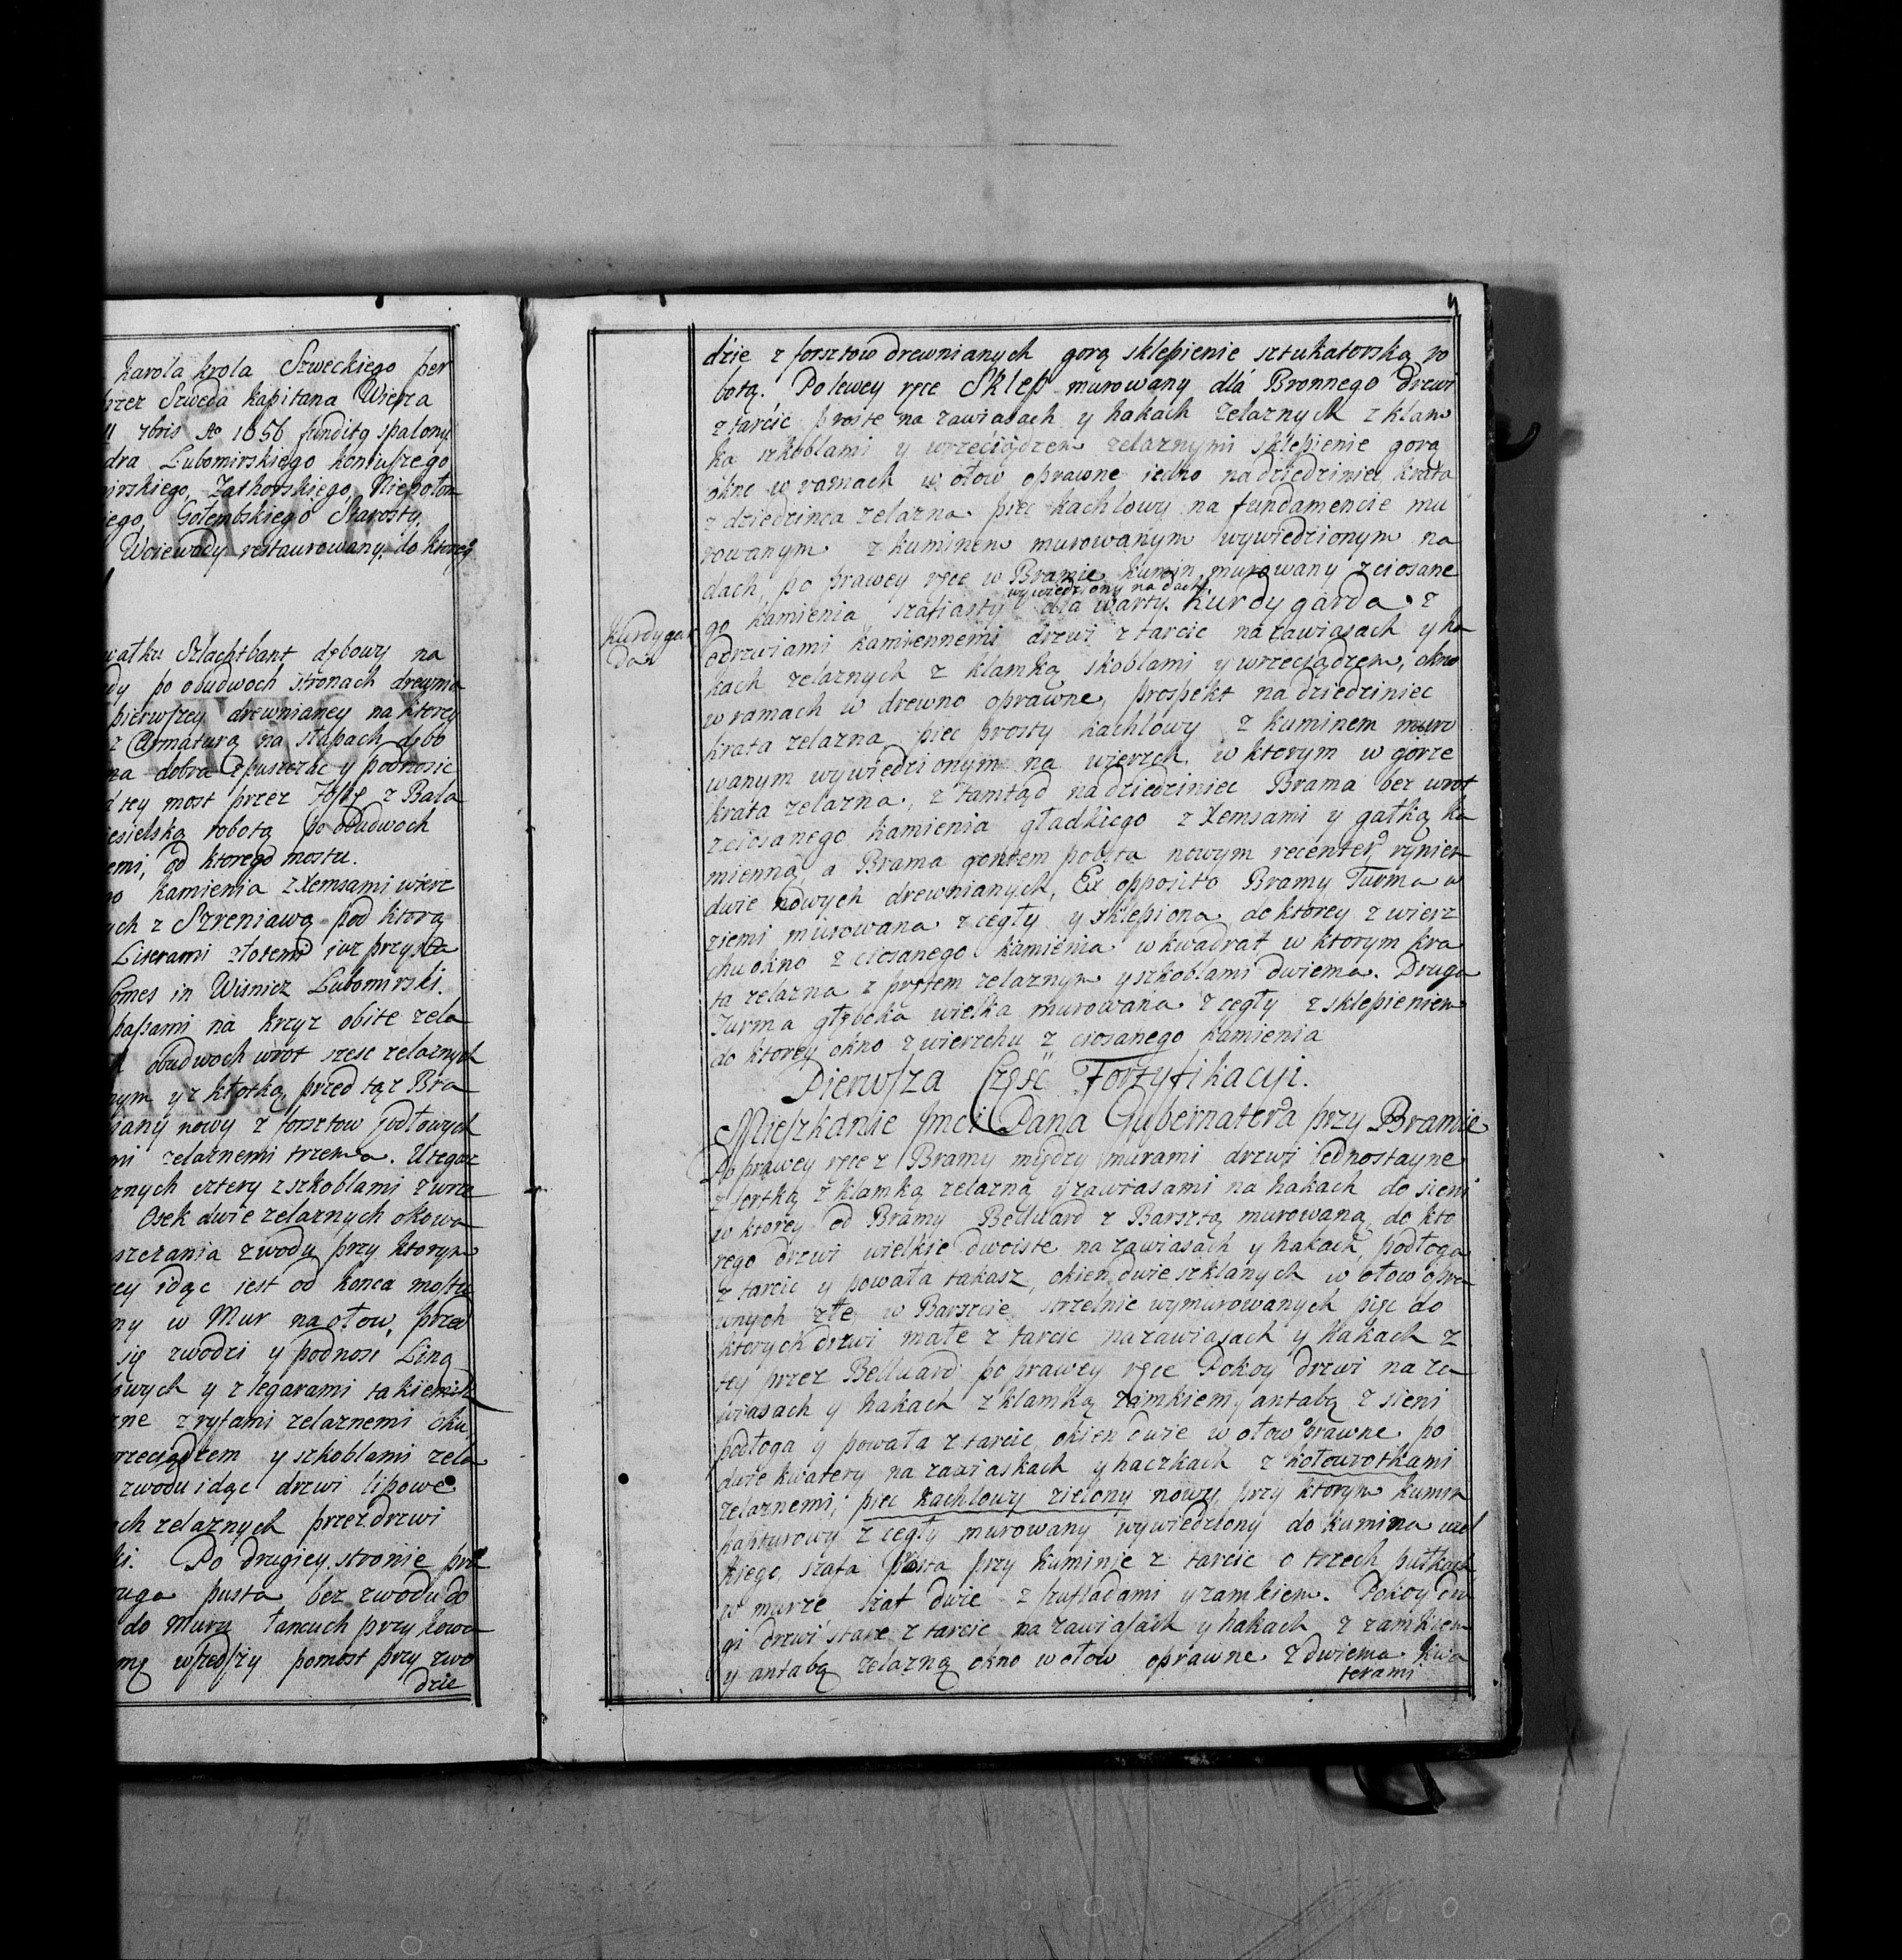 karola krola Szweckiego per
przez Szweda kapitana Wierza
11 7bris Ao 1656 funditq spalony
dra Lubomirskiego koniuszego
mirskiego, Zathorskiego, Niepołom
iego, Gołembskiego Starosty,
Woiewody restaurowany, do ktorey
wałku Szlachtbant dębowy na
dy po obudwoch stronach drewma
pierwszey drewnianey na ktorey
z Armaturą na słupach dębo
na dobra spuszczac y podnosic
tey most przez Fosę z Bala
iesielską robotą po obudwoch
emi, od ktorego mostu.
o kamienia z Xemsami wierz
ych z Szreniawą pod ktorą
Literami złotemi iuz przy
Comes in Wisnicz Lubomirski.
passami na krzyz obite zela
obudwoch wrot szesc zelaznych
nym y z kłotką, przed tąz Bra
iany nowy z forsztow Jodłowych
mi zelaznemi trzema. U tegoz
znych cztery z szkoblami z wrze
Osek dwie zelaznych okowa
szczania zwodu przy ktorym
ey idąc iest od konca mostu
ny w Mur na ołow, przed
się zwodzi y podnosi Liną
owych y z legarami takiemisz
ne z ryfami zelaznemi oku
rzeciądzem y szkoblami zela
zwodu idąc drzwi lipowe
ch zelaznych przez drzwi
ki. Po drugiey stronie prz
uga pusta bez zwodu do
do Muru łancuch przykowa
mę wszedszy pomost przy zwo
dzie
dzie z forsztow drewnianych gorą sklepienie sztukatorską ro
botą. Po lewey ręce Sklep murowany dla Bronnego drzwi
z tarcic proste na zawiasach y hakach zelaznych z klam
ką szkoblami y wrzeciądzem zelaznymi sklepienie gorą
okno w ramach w ołow oprawne iedno na dziedziniec krata
z dziedzinca zelazna. piec kachlowy na fundamencie mu
rowanym z kuminem murowanym wywiedzionym na
dach, po prawey ręce w Bramie kumin murowany z ciosane
wywiedziony na dach,
go kamienia, szafiasty dla warty. Kurdygarda z
Kurdygar
da
odrzwiami kamiennemi drzwi z tarcic na zawiasach y ha
kach zelaznych z klamką skoblami y wrzeciądzem, okno
w ramach w drewno oprawne, prospekt na dziedziniec
krata zelazna, piec prosty kachlowy z kuminem muro
wanym wywiedzionym na wierzch, w ktorym w gorze
krata zelazna, z tamtąd na dziedziniec Brama bez wrot
z ciosanego kamienia gładkiego z Xemsami y gałką ka
mienną, a Brama gontem pobita nowym recenter, rynien
dwie nowych drewnianych, Ex opposito Bramy Turma w
ziemi murowana z cegły y sklepiona do ktorey z wierz
chu okno z ciosanego kamienia w kwadrat w ktorym kra
ta zelazna z prętem zelaznym y szkoblami dwiema. Druga
Turma głęboka wielka murowana z cegły z sklepieniem
do ktorey okno z wierzchu z ciosanego kamienia
Pierwsza Częsc Fortyfikacyi.
Mieszkanie Jmci Pana Gubernatora przy Bramie
Po prawey ręce z Bramy między murami drzwi iednostayne
z fortką z klamką zelazną y zawiasami na hakach do sieni
w ktorey od Bramy Belluard z Barsztą murowaną, do kto
rego drzwi wielkie dwoiste na zawiasach y hakach, podłoga
z tarcic y powała takasz, okien dwie szklanych w ołow opra
wnych złe, w Barszcie strzelnic wymurowanych pięc do
ktorych drzwi małe z tarcic na zawiasach y hakach z
tey przez Belluard po prawey ręce Pokoy drzwi na za
wiasach y hakach z klamką zamkiem y antabą z sieni
podłoga y powała z tarcic, okien dwie w ołow oprawne po
dwie kwatery na zawiaskach y haczkach z kołowrotkami
zelaznemi, piec kachlowy zielony nowy, przy ktorym kumin
kapturowy z cegły murowany wywiedziony do kumina wiel
kiego, szafa prosta przy kuminie z tarcic o trzech pułkach
w murze szaf dwie z szufladami y zamkiem. Pokoy dru
gi drzwi stare z tarcic na zawiasach y hakach z zamkiem
y antabą zelazną okno w ołow oprawne z dwiema kwa
terami